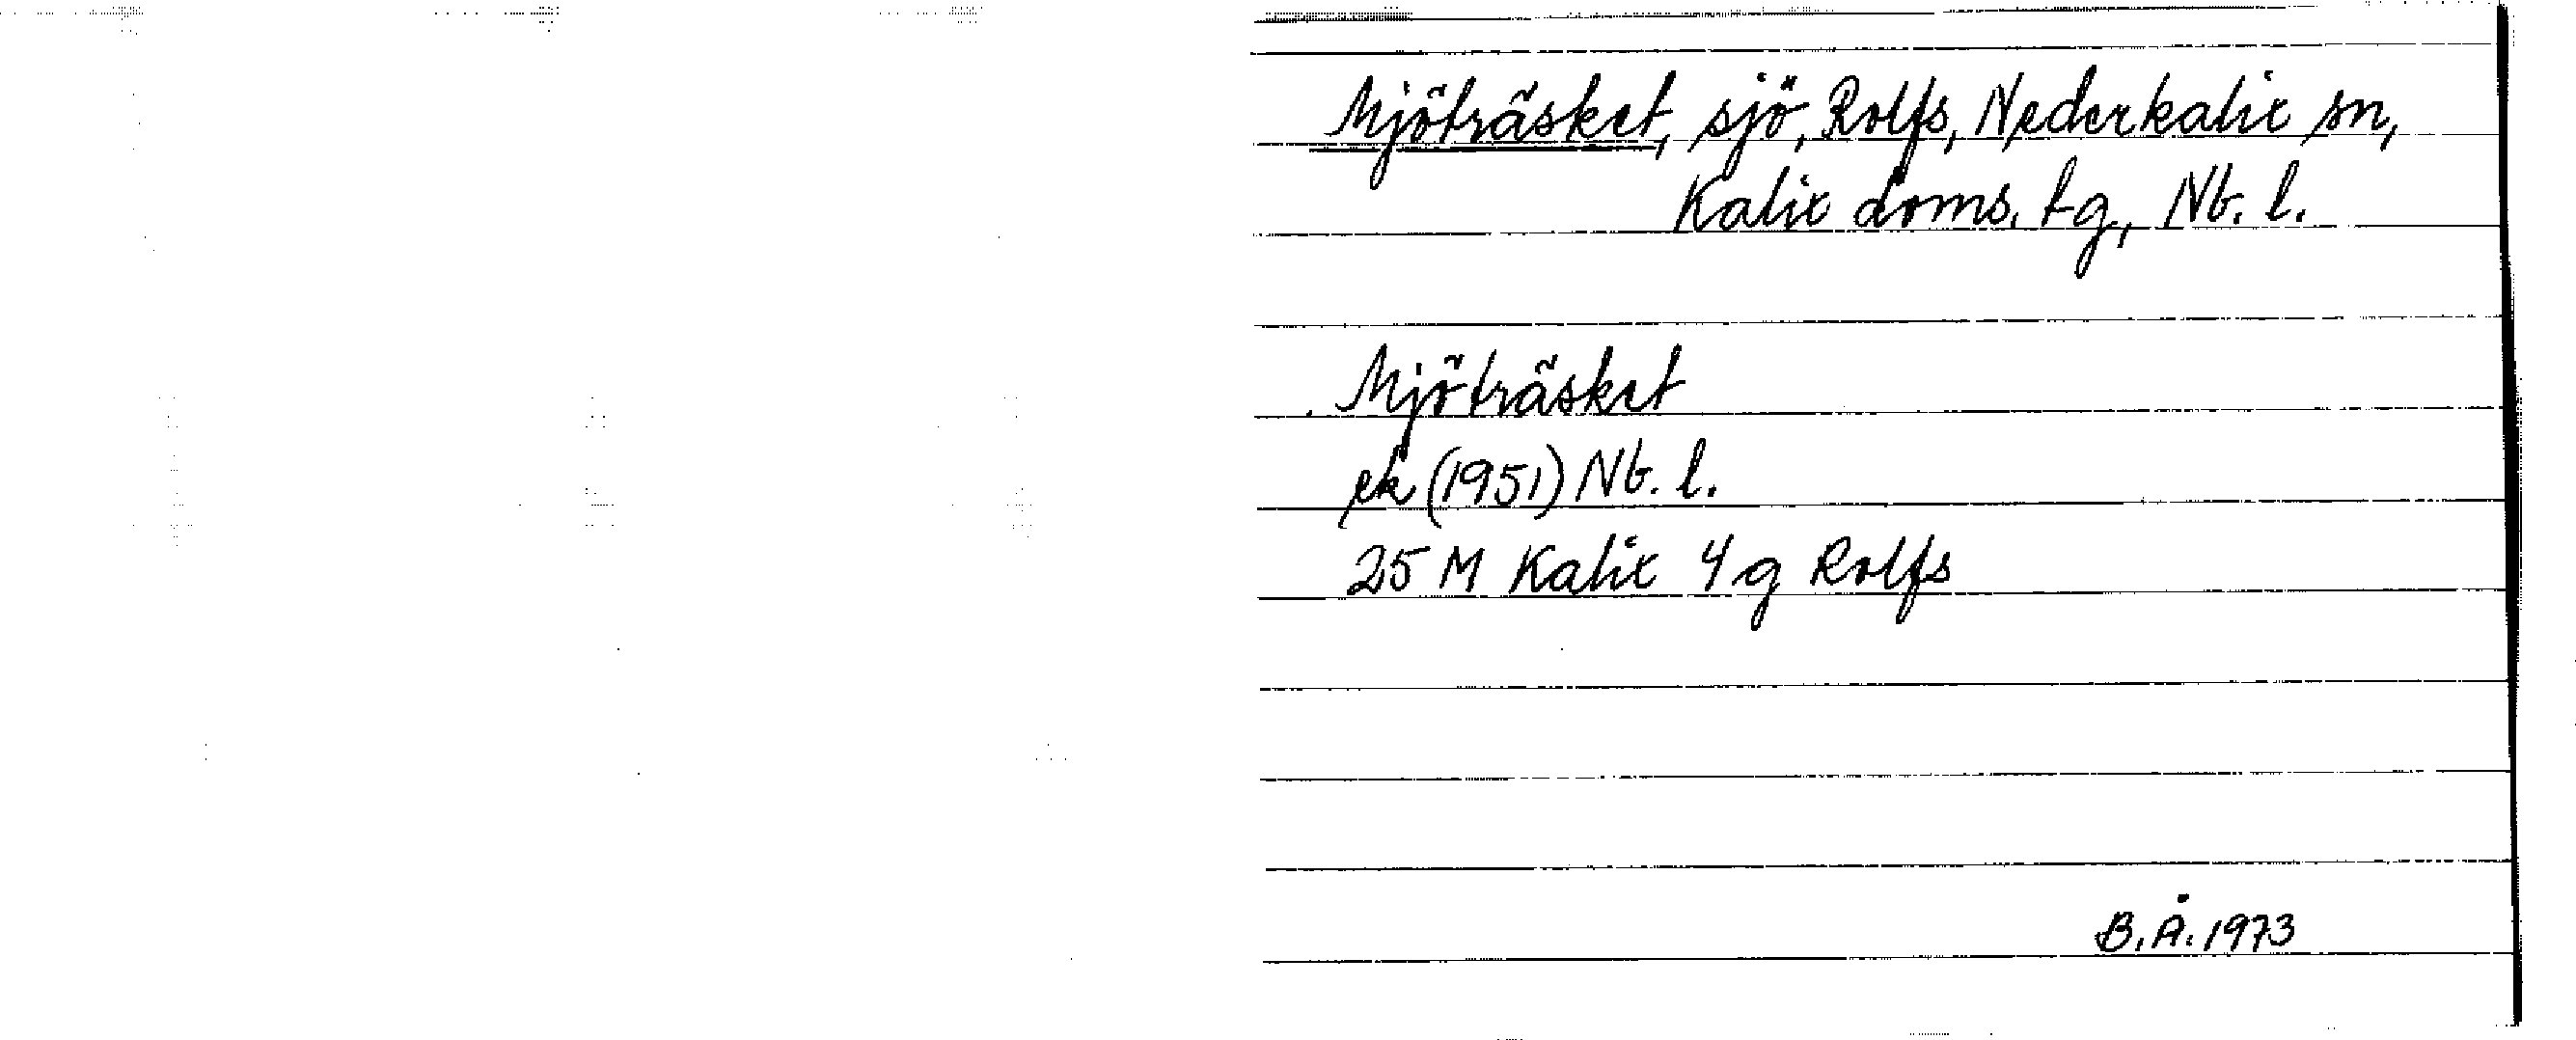 Mjöträsket, sjö, Rolfs, Nederkalix sn,
Kalix doms. tg, Nb. l.
Mjöträsket
ek (1951) Nb. l.
25 M Kalix 4 g Rolfs
B. Å. 1973